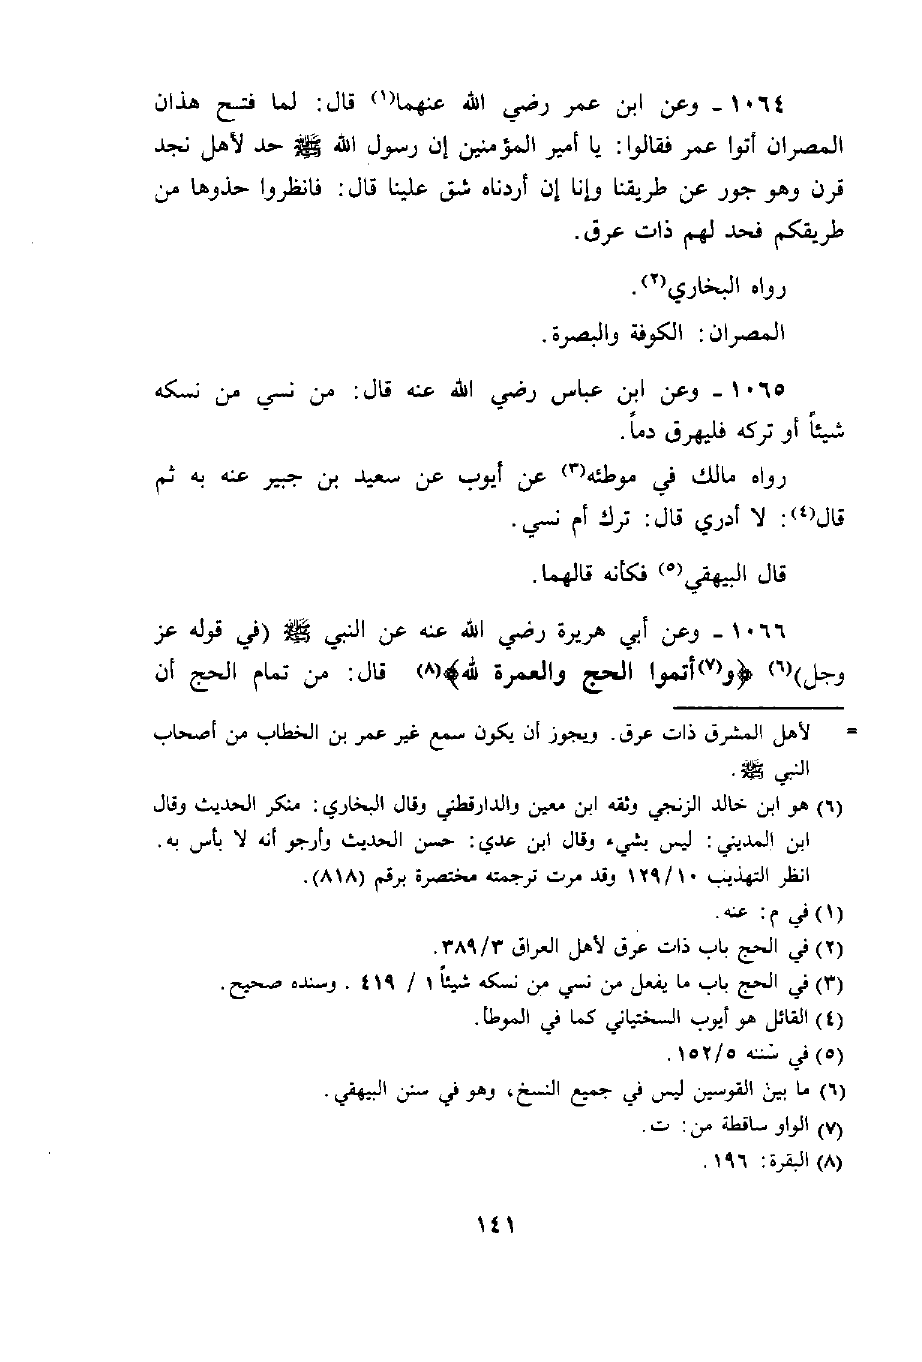 ١٠٦٤ ـ وعن ابن عمر رضي الله عنهما(١) قال: لما فتح هذان
المصران أتوا عمر فقالوا: يا أمير المؤمنين إن رسول الله ﷺ حد لأهل نجد
قرن وهو جور عن طريقنا وإنا إن أردناه شق علينا قال: فانظروا حذوها من
طريقكم فحد لهم ذات عرق.
رواه البخاري(٢).
المصران: الكوفة والبصرة.
١٠٦٥ ـ وعن ابن عباس رضي الله عنه قال: من نسي من نسكه
شيئاً أو تركه فليهرق دماً.
رواه مالك في موطئه(٣) عن أيوب عن سعيد بن جبير عنه به ثم
قال(٤): لا أدري قال: ترك أم نسي.
قال البيهقي(٥) فكأنه قالهما.
١٠٦٦ ـ وعن أبي هريرة رضي الله عنه عن النبي ﷺ (في قوله عز
وجل)(٦) ﴿و(٧)أتموا الحج والعمرة لله﴾(٨) قال: من تمام الحج أن
= لأهل المشرق ذات عرق. ويجوز أن يكون سمع غير عمر بن الخطاب من أصحاب
النبي ﷺ.
(٦) هو ابن خالد الزنجي وثقه ابن معين والدارقطني وقال البخاري: منكر الحديث وقال
ابن المديني: ليس بشيء وقال ابن عدي: حسن الحديث وأرجو أنه لا بأس به.
انظر التهذيب ١٢٩/١٠ وقد مرت ترجمته مختصرة برقم (٨١٨).
(١) في م: عنه.
(٢) في الحج باب ذات عرق لأهل العراق ٣٨٩/٣.
(٣) في الحج باب ما يفعل من نسي من نسكه شيئاً ١ / ٤١٩ . وسنده صحيح.
(٤) القائل هو أيوب السختياني كما في الموطأ.
(٥) في سننه ١٥٢/٥ .
(٦) ما بين القوسين ليس في جميع النسخ، وهو في سنن البيهقي.
(٧) الواو ساقطة من: ت.
(٨) البقرة: ١٩٦ .
١٤١